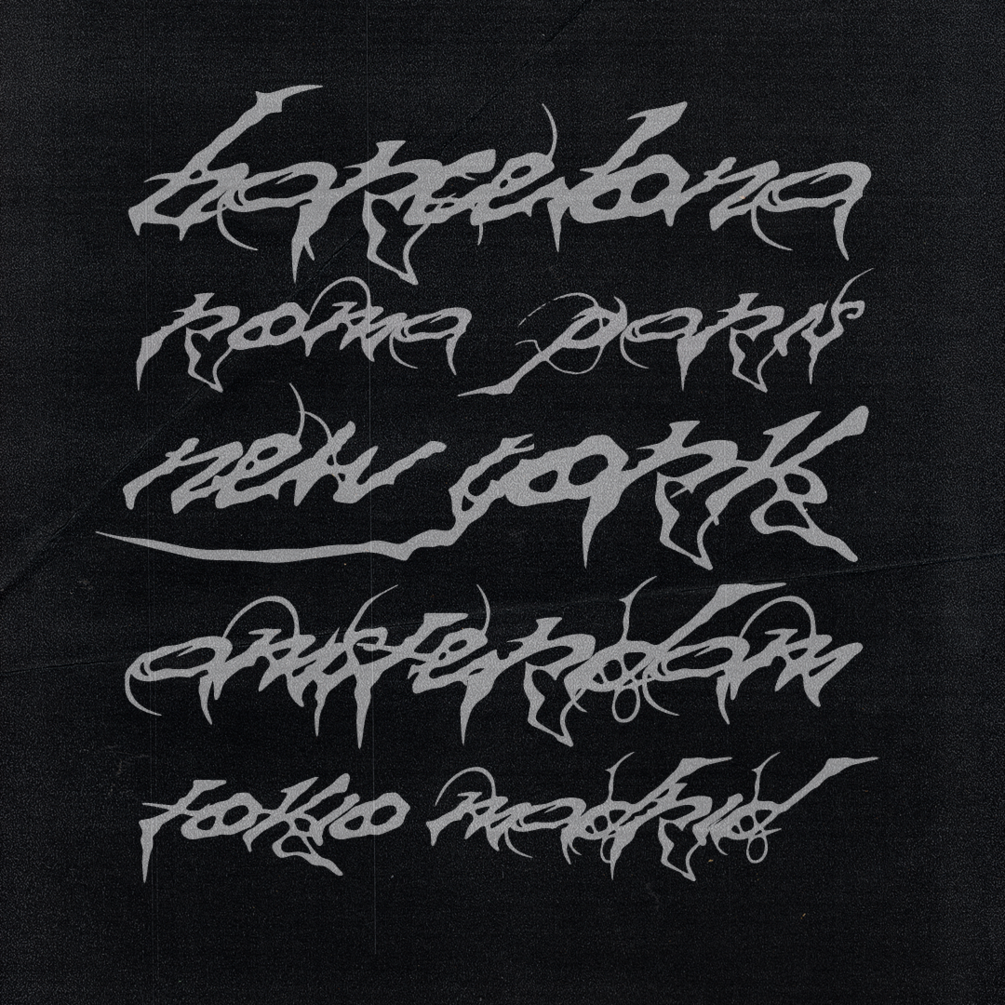 barcelona
roma paris
new york
amsterdam
tokio madrid